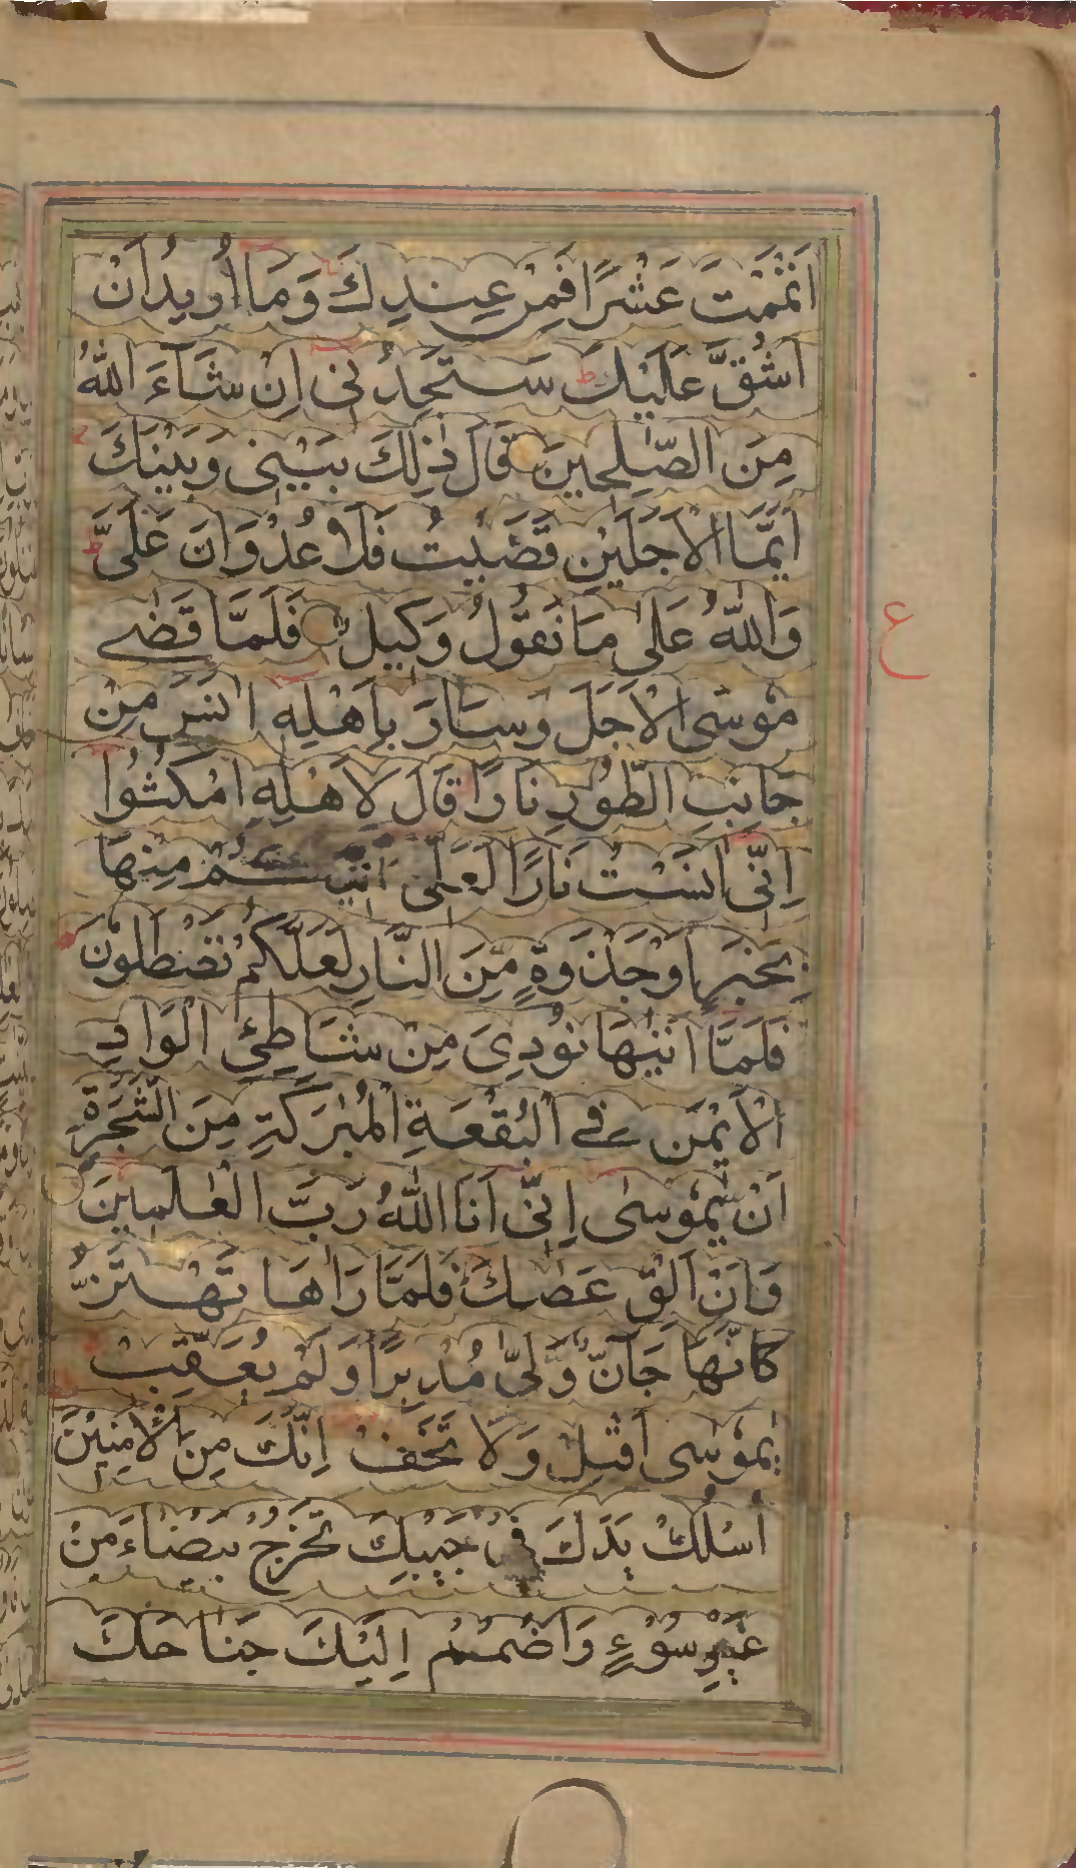 اَتْمَمْتَ عَشْرًا فَمِنْ عِنْدِكَ وَمَا اُرِيدُ اَنْ
اَشُقَّ عَلَيْكَ ط سَتَجِدُنِى اِنْ شَآءَ اللّٰهُ
مِنَ الصّٰلِحِينَ قَالَ ذٰلِكَ بَيْنِى وَبَيْنَكَ
اَيَّمَا الْاَجَلَيْنِ قَضَيْتُ فَلَا عُدْوَانَ عَلَىَّ ط
وَاللّٰهُ عَلٰى مَا نَقُوْلُ وَكِيلٌ فَلَمَّا قَضٰى
ع
مُوسَى الْاَجَلَ وَسَارَ بِاَهْلِهِ اٰنَسَ مِنْ
جَانِبِ الطُّورِ نَارًا قَالَ لِاَهْلِهِ امْكُثُوا
اِنِّى اٰنَسْتُ نَارًا لَعَلِّى اٰتِيكُمْ مِنْهَا
بِخَبَرٍ اَوْ جَذْوَةٍ مِنَ النَّارِ لَعَلَّكُمْ تَصْطَلُونَ
فَلَمَّا اَتٰيهَا نُوْدِىَ مِنْ شَاطِئِ الْوَادِ
الْاَيْمَنِ فِے الْبُقْعَةِ الْمُبٰرَكَةِ مِنَ الشَّجَرَةِ
اَنْ يٰمُوْسٰى اِنِّى اَنَا اللّٰهُ رَبُّ الْعٰلَمِينَ
وَاَنْ اَلْقِ عَصَاكَ فَلَمَّا رَاٰهَا تَهْتَزُّ
كَاَنَّهَا جَآنٌّ وَّلّٰى مُدْبِرًا وَلَمْ يُعَقِّبْ
يٰمُوسٰى اَقْبِلْ وَلَا تَخَفْ اِنَّكَ مِنَ الْاٰمِنِيْنَ
اُسْلُكْ يَدَكَ فِىْ جَيْبِكَ تَخْرُجْ بَيْضَاءَ مِنْ
غَيْرِ سُوْءٍ وَاضْمُمْ اِلَيْكَ جَنَاحَكَ